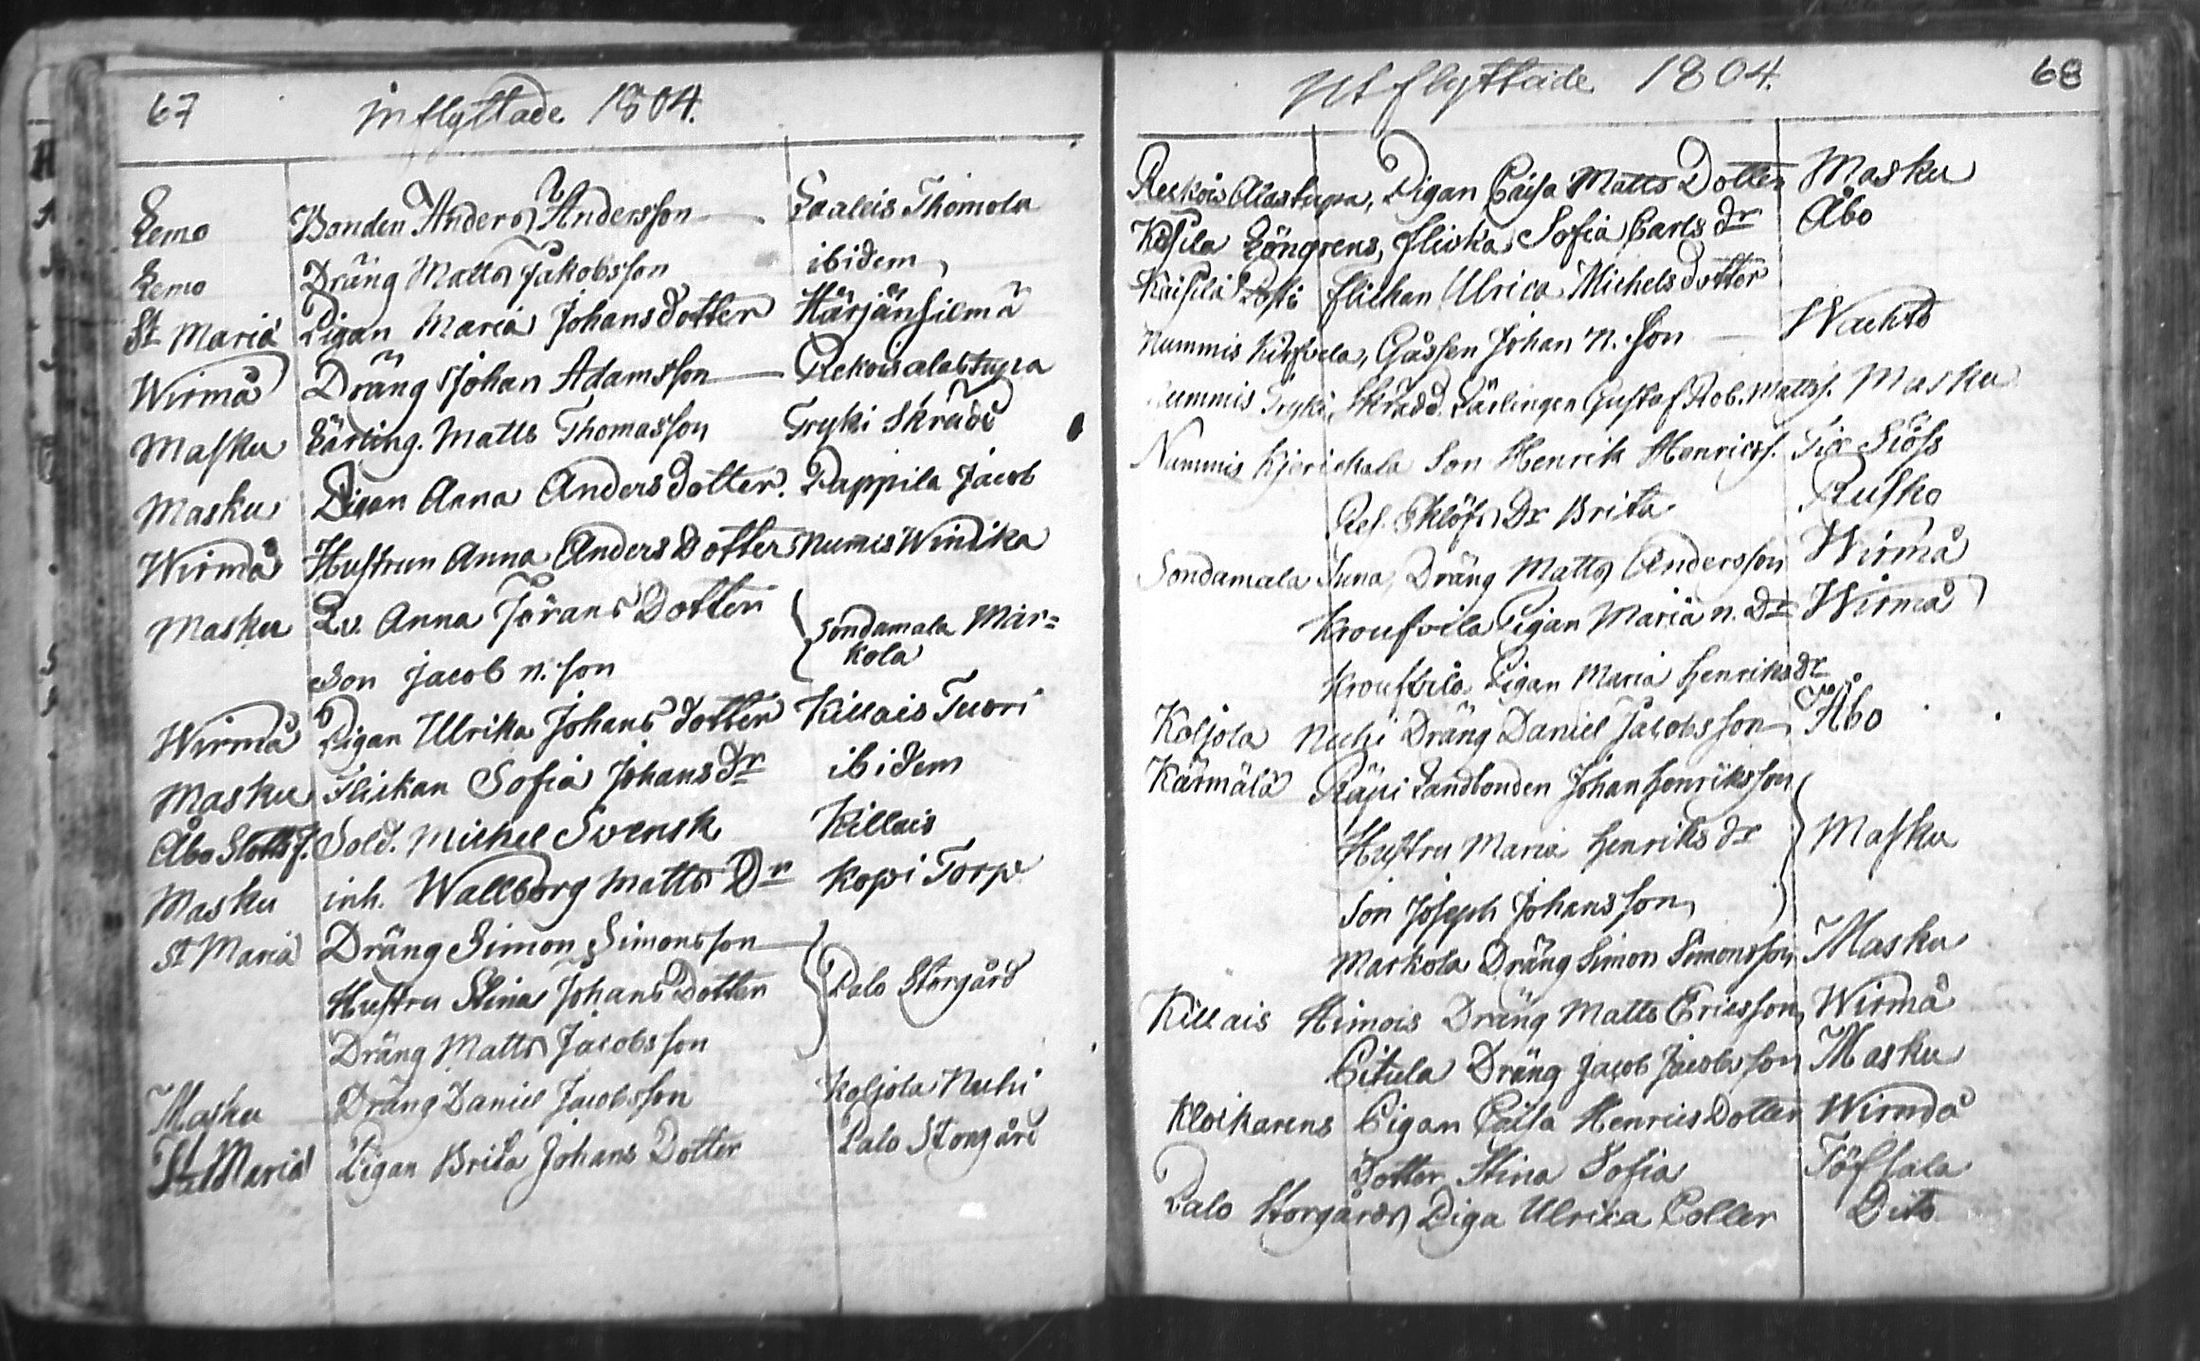 67 inflyttade 1804.
Lemo Bonden Anders Andersson Laaleis Thomola
Lemo Dräng Matts Jakobsson ibidem
St Mariæ Pigan Maria Johansdotter Härjänsilmä
Wirmå Dräng Johan Adamsson Rekois alastupa
Masku Lärling. Matts Thomasson Tryki Skrädd
Masku Pigan Anna Andersdotter. Pappila Jacob
Wirmå Hustrun Anna Anders Dotter Numis Winika
Masku Qv. Anna Jörans Dotter Sondamala Mar=
Son Jacob n. son kola
Wirmå Pigan Ulrika Johans dotter Killais Tuori
Masku Flickan Sofia Johans dr ibidem
Åbo Slotts f. Sold. Michel Svensk Killais
Masku inh. Wallborg Matts Dr Kopi Torp
St Mariæ Dräng Simon Simonsson
Hustru Stina Johans Dotter Palo Storgård
Dräng Matts Jacobsson
Masku Dräng Daniel Jacobsson Koljola Nuhi
St Mariæ Pigan Brita Johans Dotter Palo Storgård
Utflyttade 1804. 68
Reekois Alastupa, Pigan Caisa Matts Dotter Masku
Löngrens, flicka Sofia Carls dr Åbo
Kaisila flickan Ulrica Michelsdotter
Nummis Gåssen Johan n. Son Wachto
Nummis Tryki, Skrädd. Lärlingen Gustaf Rob. Mattss. Masku
Nummis Son Henrik Henricss. Till Siöss
Eklöfs Dr Brita Rusko
Sondamala Juna, Dräng Matts Andersson Wirmå
Kroufvila Pigan Maria n. Dr Wirmå
Kroufvila Pigan Maria Henriks dr
Koljola Nuhi Dräng Daniel Jacobsson Åbo
Kärmälä Räpi Landbonden Johan Henriksson
Hustru Maria Henriks dr Masku
Son Joseph Johansson
Markola Dräng Simon Simonsson Masku
Killais Himois Dräng Matts Ericsson Wirmå
Eitula Dräng Jacob Jacobsson Masku
Klockarens Pigan Caisa Henrics Dotter Wirmå
Dotter Stina Sofia Töfsala
Palo Storgårds Piga Ulrica Coller Dito